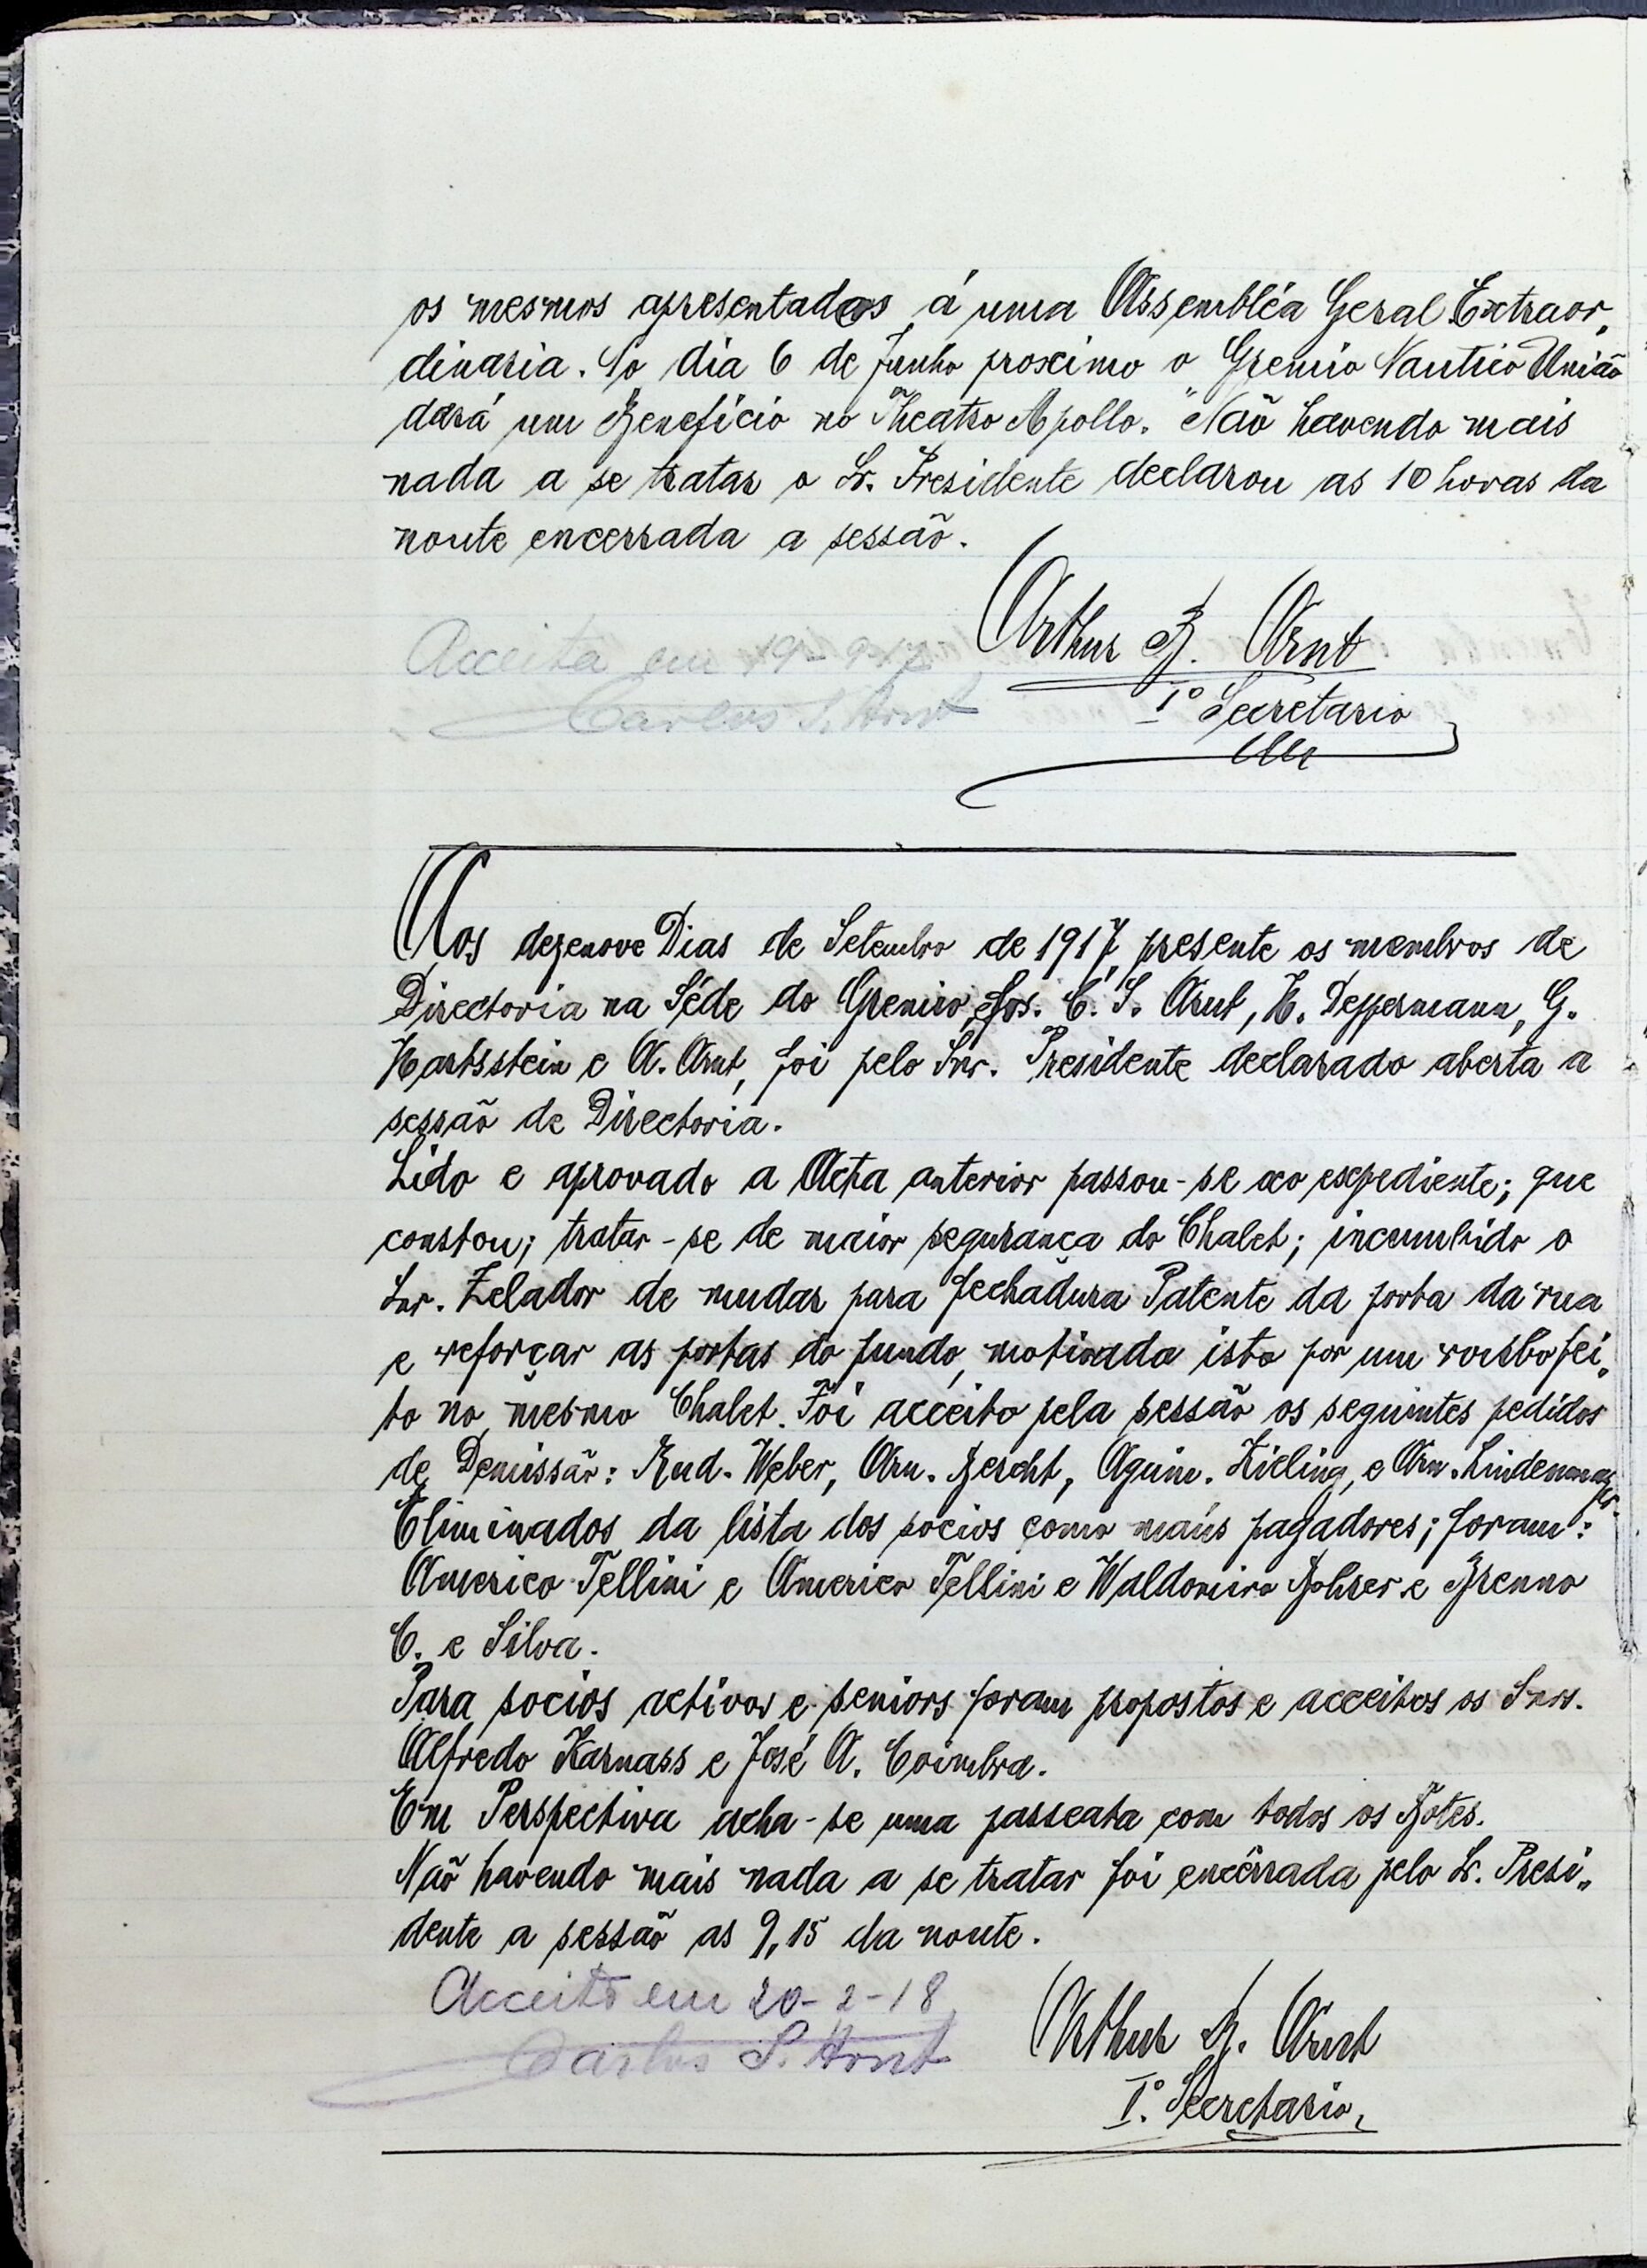 os mesmos apresentados á uma Assembléa Geral Extraor„
dinaria. No dia 6 de Junho proximo o Gremio Nautico União
dará um Beneficio no Theatro Apollo. Não havendo mais
nada a se tratar o Sr. Presidente declarou as 10 horas da
noute encerrada a sessão.
Arthur B. Arnt
1º Secretario
Acceita em 19-9-17
Carlos S. Arnt
Aos dezenove Dias de Setembro de 1917, presente os membros de
Directoria na Séde do Gremio, Srs. C. S. Arnt, H. Deppermann, G.
Hartsstein e A. Arnt, foi pelo Snr. Presidente declarado aberta a
sessão de Directoria.
Lido e aprovado a Acta anterior passou-se ao expediente; que
constou; tratar-se de maior segurança do Chalet; incumbido o
Snr. Zelador de mudar para fechadura Patente da porta da rua
e reforçar as portas do fundo, motivado isto por um roubo fei„
to no mesmo Chalet. Foi acceito pela sessão os seguintes pedidos
de Demissão: Rud. Weber, Arn. Bercht, Aquim. Kieling, e Arn. Lindenmayer.
Eliminados da lista dos socios como maús pagadores; foram:
Americo Tellini e Americo Tellini e Waldomiro Bohrer e Brenno
C. e Silva.
Para socios activos e seniors foram propostos e acceitos os Snrs.
Alfredo Karnass e José A. Coimbra.
Em Perspectiva acha-se uma passeata com todos os Botes.
Não havendo mais nada a se tratar foi encêrrada pelo Sr. Presi„
dente a sessão as 9,15 da noute.
Acceito em 20-2-18
Carlos S. Arnt
Arthur B. Arnt
1º. Secretario